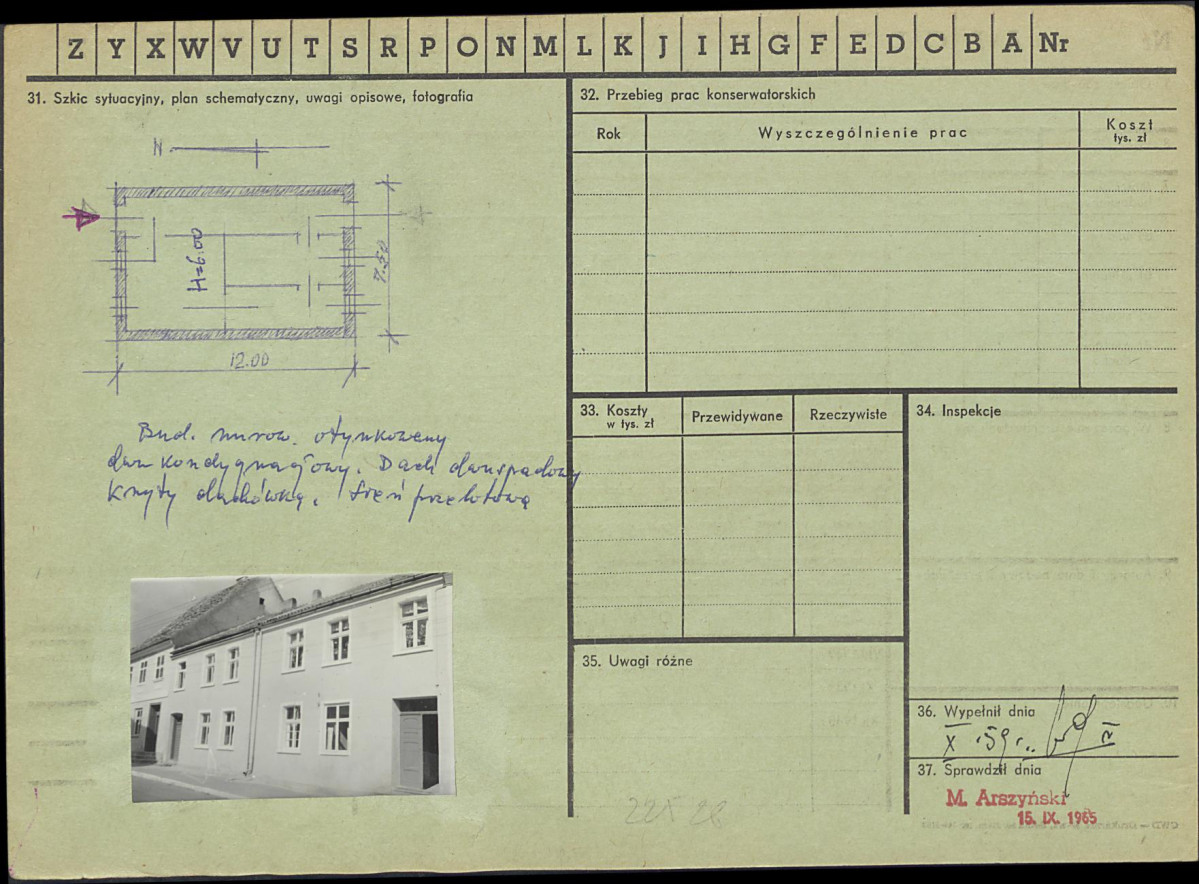 Z Y X W V U T S R P O N M L K J I H G F E D C B A Nr
31. Szkic sytuacyjny, plan schematyczny, uwagi opisowe, fotografia
N
H=6.00
7.50
12.00
Bud. murow. otynkowany
dwukondygnacjowy. Dach dwuspadowy
kryty dachówką. Sień przelotowa
32. Przebieg prac konserwatorskich
Rok
Wyszczególnienie prac
Koszt
tys. zł
33. Koszty
w tys. zł
Przewidywane
Rzeczywiste
34. Inspekcje
35. Uwagi różne
225 28
36. Wypełnił dnia
X .59 r.
37. Sprawdził dnia
M. Arszyński
15. IX. 1965